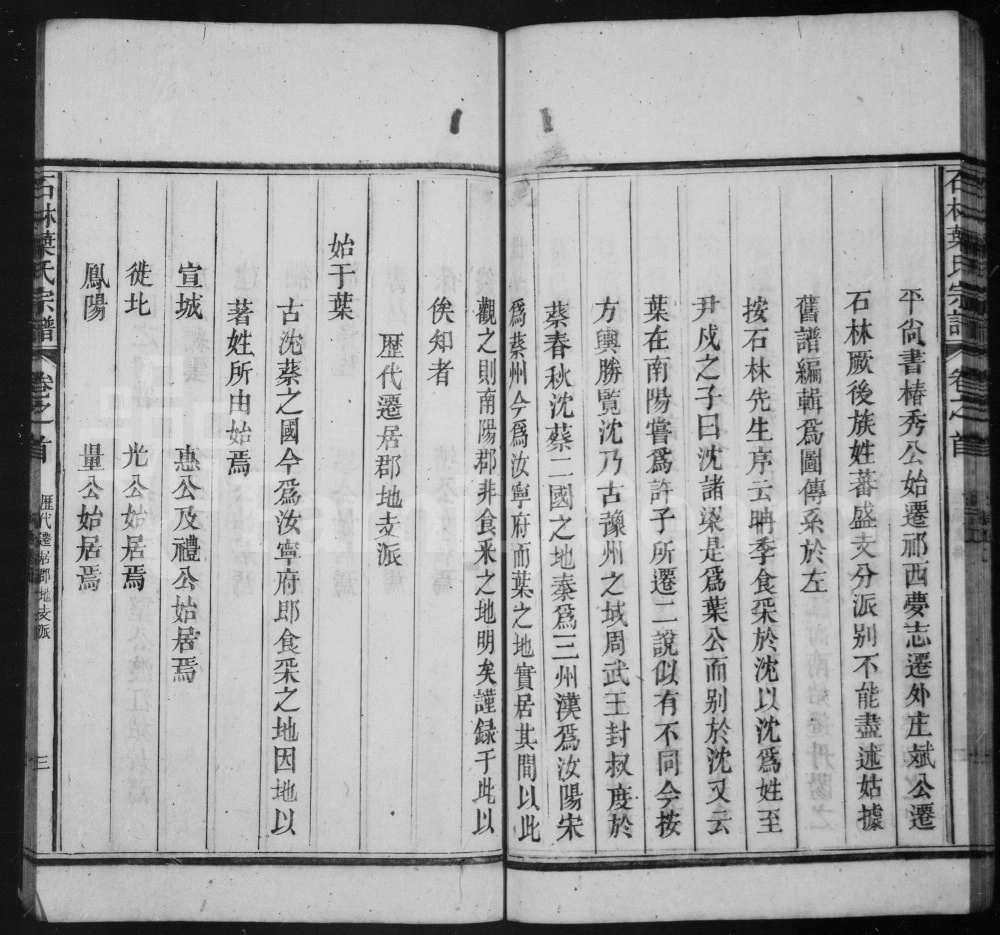 石林葉氏宗譜 卷之首
平尙書椿秀公始遷祁西夢志遷外庄斌公遷
石林厥後族姓蕃盛支分派别不能盡述姑據
舊譜編輯爲圖傳系於左
按石林先生序云聃季食采於沈以沈爲姓至
尹戍之子曰沈諸梁是爲葉公而别於沈又云
葉在南陽嘗爲許子所遷二說似有不同今按
方輿勝覽沈乃古豫州之域周武王封叔度於
蔡春秋沈蔡二國之地秦爲三州漢爲汝陽宋
爲蔡州今爲汝寧府而葉之地實居其間以此
觀之則南陽郡非食采之地明矣謹録于此以
俟知者
歷代遷居郡地支派
始于葉
古沈蔡之國今爲汝寧府郎食采之地因地以
著姓所由始焉
宣城 惠公及禮公始居焉
徙北 光公始居焉
鳳陽 量公始居焉
石林葉氏宗譜 卷之首 歷代遷居郡地支派 三